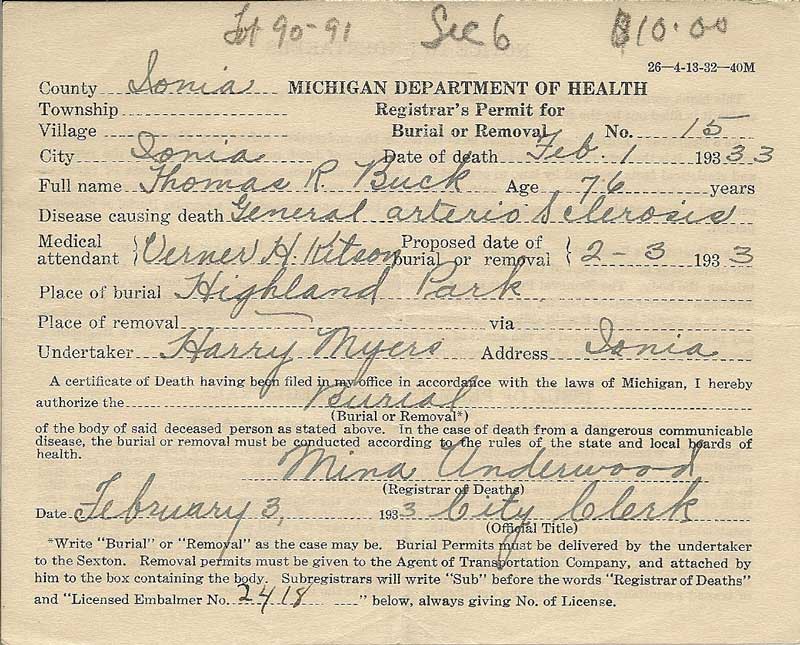 Lot 90-91 Sec 6 $10.00
26—4-13-32—40M
County Ionia MICHIGAN DEPARTMENT OF HEALTH
Township Registrar's Permit for
Village Burial or Removal No. 15
City Ionia Date of death Feb. 1 1933 3
Full name Thomas R. Buck Age 76 years
Disease causing death General arterio Sclerosis
Medical attendant Verner H. Kitson Proposed date of burial or removal 2-3 1933
Place of burial Highland Park
Place of removal — via
Undertaker Harry Myers Address Ionia
A certificate of Death having been filed in my office in accordance with the laws of Michigan, I hereby
authorize the Burial
(Burial or Removal*)
of the body of said deceased person as stated above. In the case of death from a dangerous communicable
disease, the burial or removal must be conducted according to the rules of the state and local boards of
health.
Mina Underwood
(Registrar of Deaths)
Date February 3, 1933 City Clerk
(Official Title)
*Write "Burial" or "Removal" as the case may be. Burial Permits must be delivered by the undertaker
to the Sexton. Removal permits must be given to the Agent of Transportation Company, and attached by
him to the box containing the body. Subregistrars will write "Sub" before the words "Registrar of Deaths"
and "Licensed Embalmer No. 2418 " below, always giving No. of License.